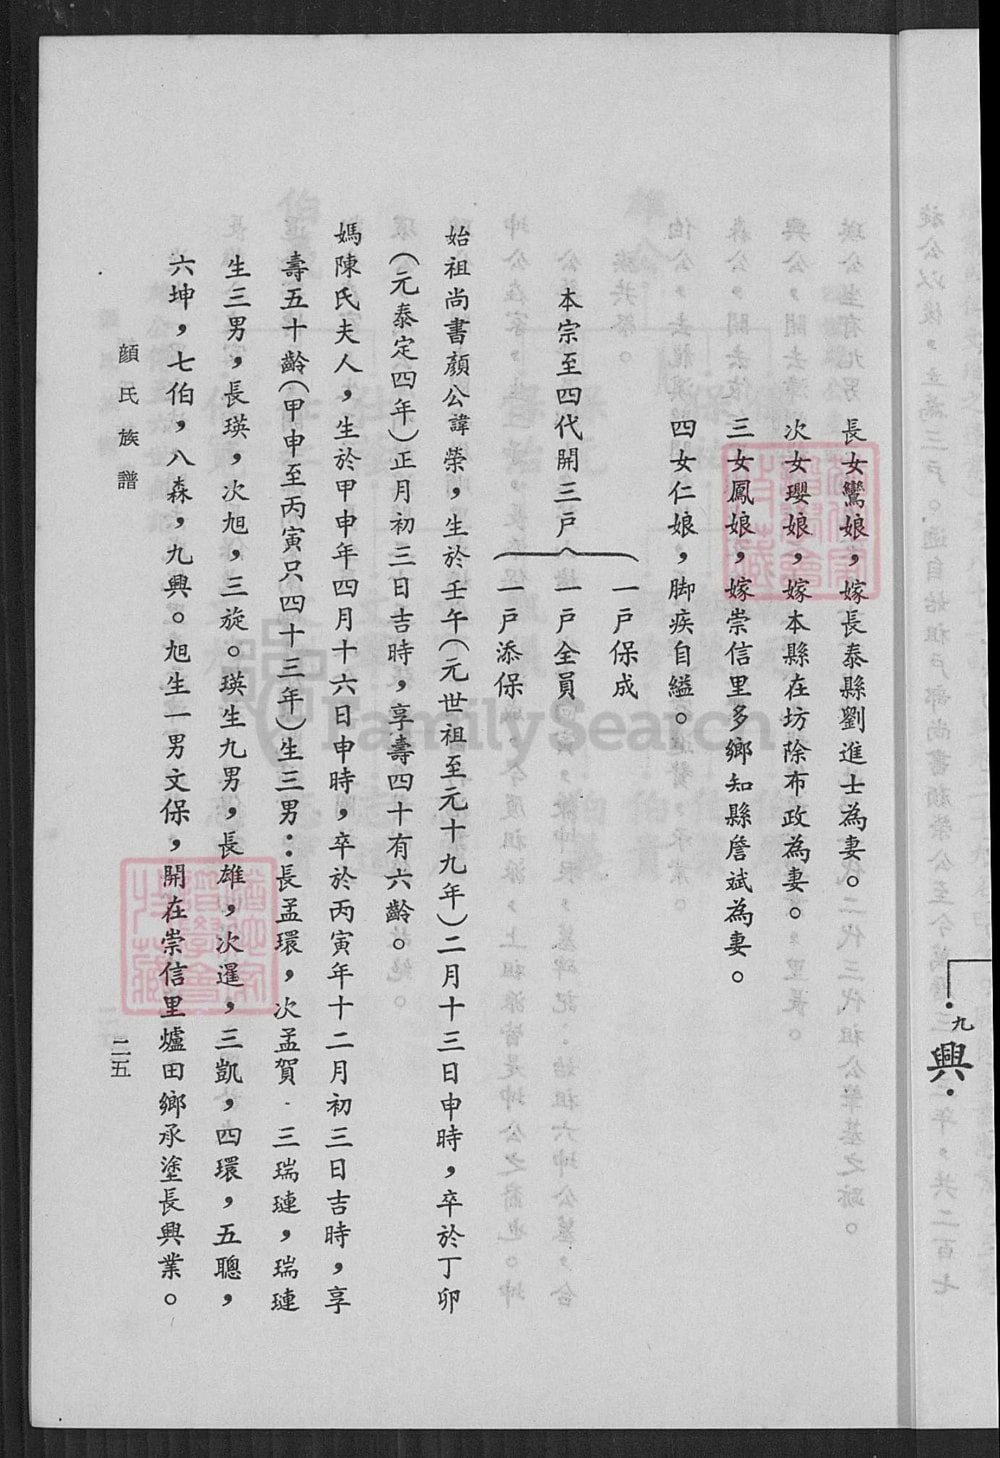 九興
長女鸞娘，嫁長泰縣劉進士為妻。
次女瓔娘，嫁本縣在坊除布政為妻。
三女鳳娘，嫁崇信里多鄉知縣詹斌為妻。
四女仁娘，脚疾自縊。
一戶保成
本宗至四代開三戶 一戶全員
一戶添保
始祖尚書顏公諱榮，生於壬午（元世祖至元十九年）二月十三日申時，卒於丁卯
（元泰定四年）正月初三日吉時，享壽四十有六齡。
媽陳氏夫人，生於甲申年四月十六日申時，卒於丙寅年十二月初三日吉時，享
壽五十齡（甲申至丙寅只四十三年）生三男：長孟環，次孟賀．三瑞璉，瑞璉
生三男，長瑛，次旭，三旋。瑛生九男，長雄，次暹，三凱，四環，五聰，
六坤，七伯，八森，九興。旭生一男文保，開在崇信里爐田鄉承塗長興業。
顏氏族譜
二五
FamilySearch